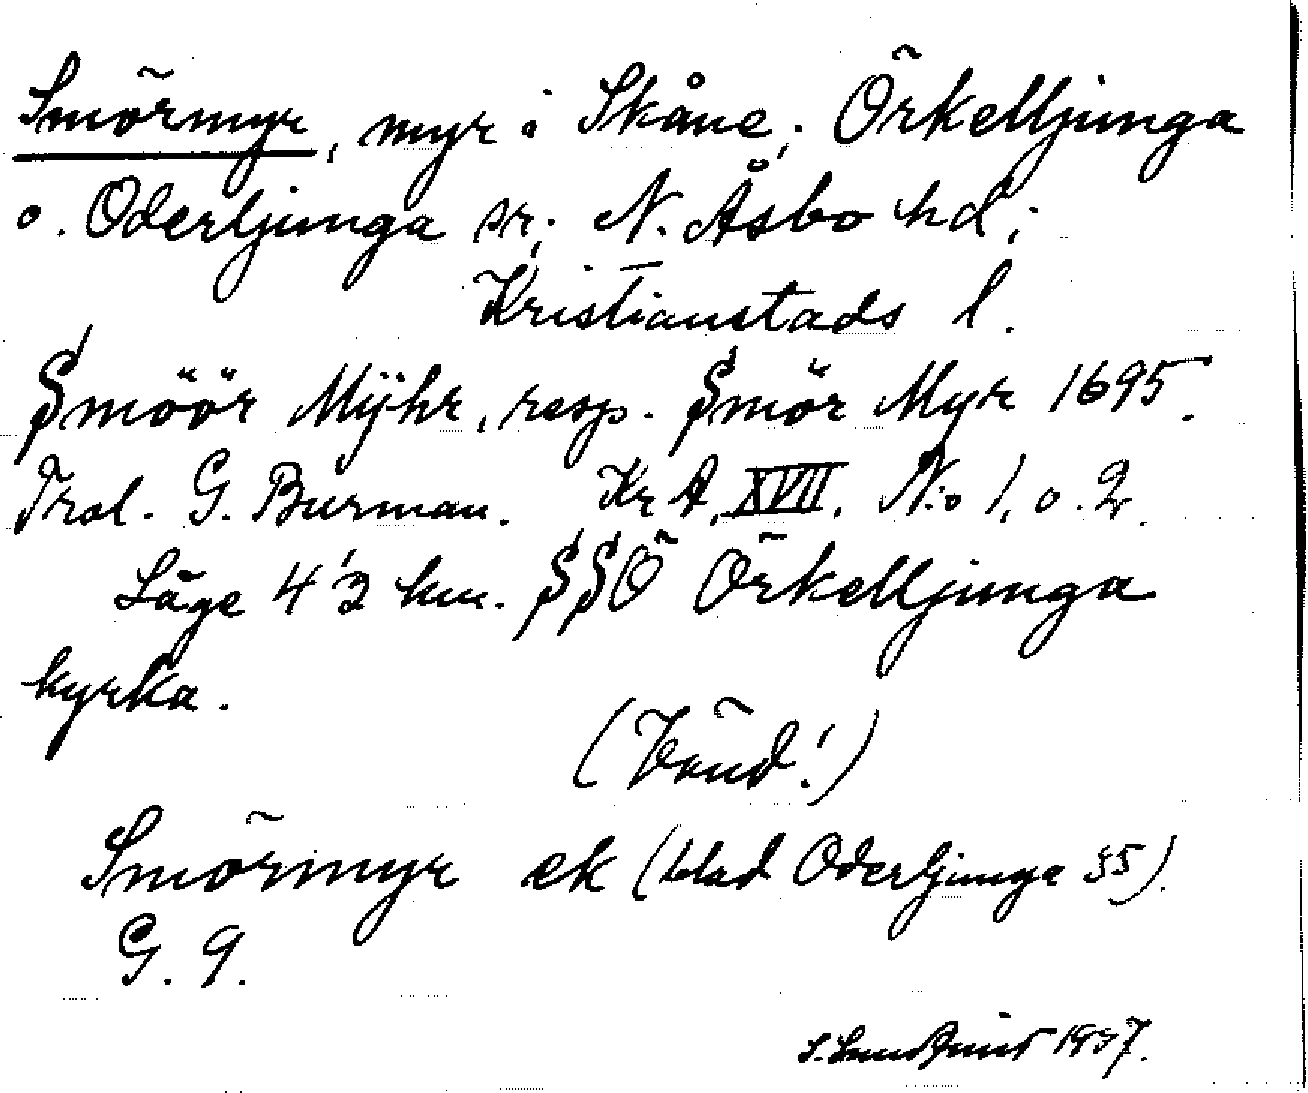 Smörmyr, myr i Skåne; Örkelljunga
o. Oderljunga sr; N. Åsbo hd;
Kristianstads l.
Smöör Mÿhr, resp. Smör Myr 1695.
Trol. G. Burman. Kr A, XVII. N:o 1, o. 2.
Läge 4'3 km. SSÖ Örkelljunga
kyrka.
(Vänd!)
Smörmyr ek (blad Oderljunga 55).
G. 9.
S. Lundquist 1937.